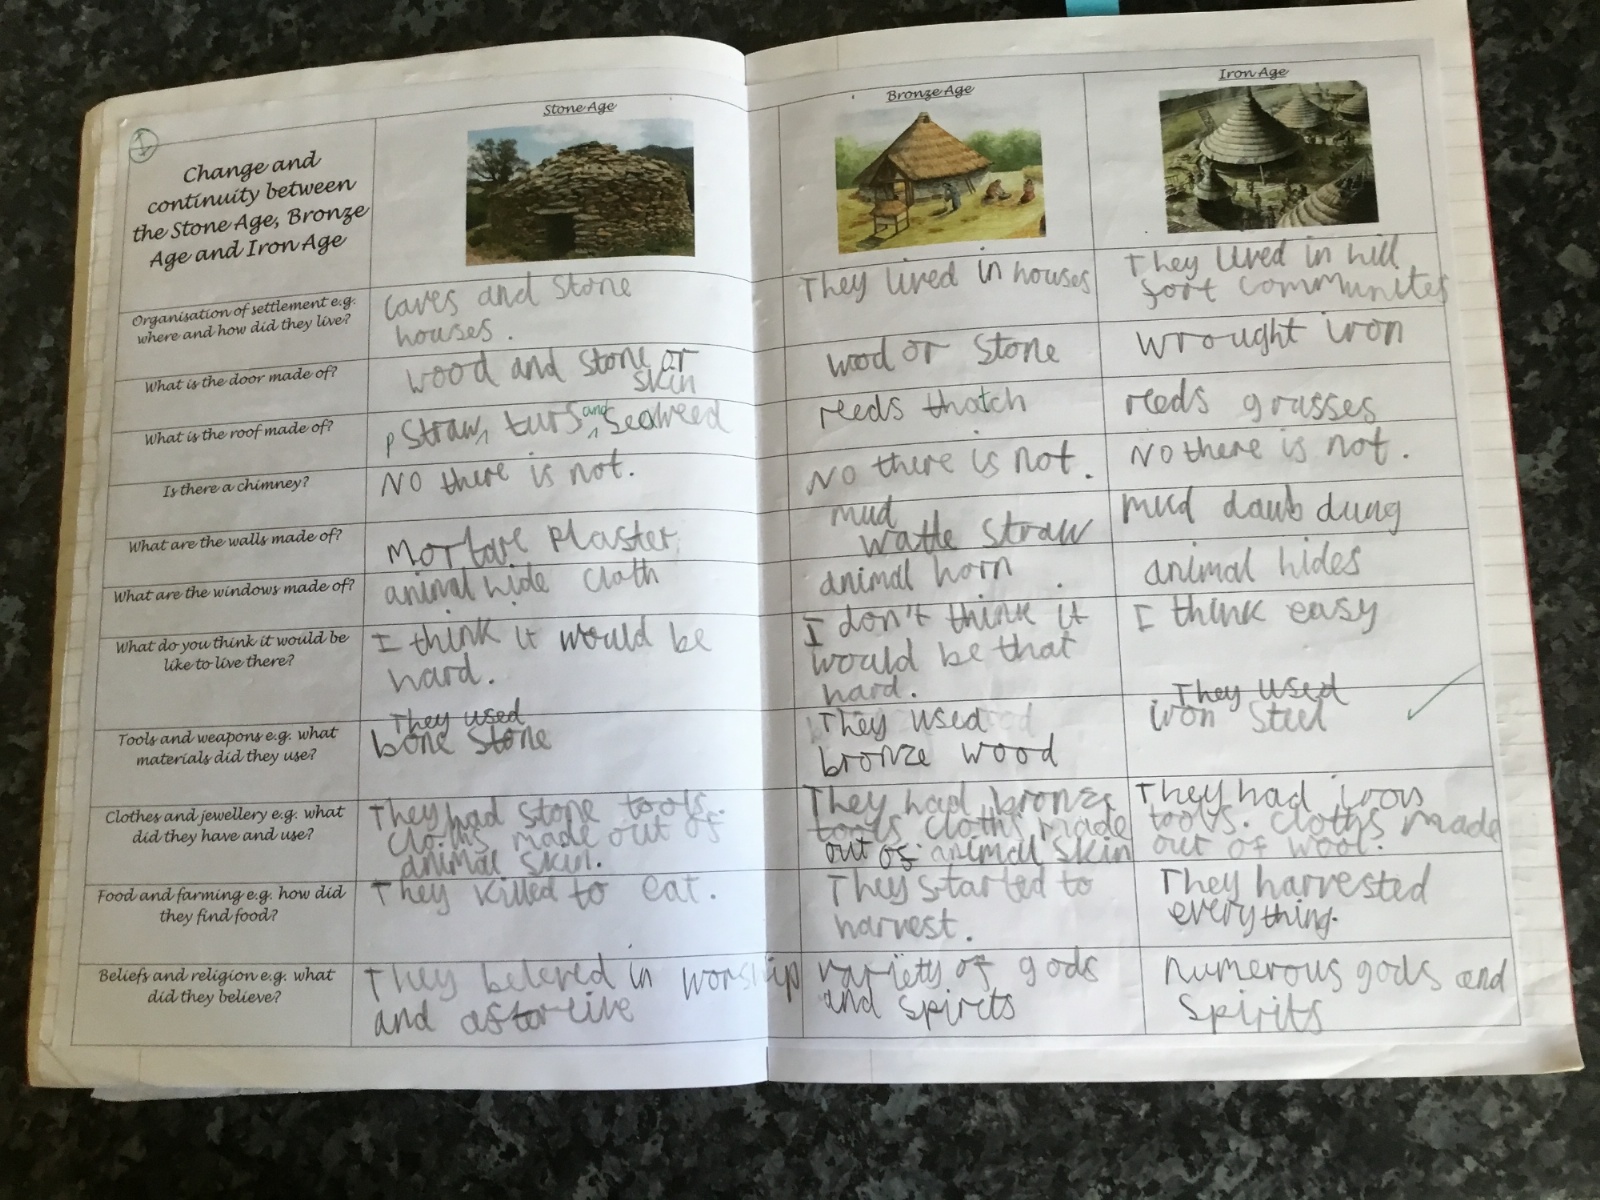 Stone Age
Bronze Age
Iron Age
Change and
continuity between
the Stone Age, Bronze
Age and Iron Age
Organisation of settlement e.g.
where and how did they live?
caves and stone
houses.
They lived in houses
They lived in hill
fort communites
What is the door made of?
wood and stone or
skin
wod or stone
wrought iron
What is the roof made of?
p straw, turf and seaweed
reeds thatch
reeds grasses
Is there a chimney?
No there is not.
No there is not.
No there is not.
What are the walls made of?
Mortare plaster
mud
wattle straw
mud daub dung
What are the windows made of?
animal hide cloth
animal horn
animal hides
What do you think it would be
like to live there?
I think it would be
hard.
I don't think it
would be that
hard.
I think easy
Tools and weapons e.g. what
materials did they use?
They used
bone stone
They used
bronze wood
They used
iron steel
Clothes and jewellery e.g. what
did they have and use?
They had stone tools.
cloths made out of
animal skin.
They had bronze
tools cloths made
out of animal skin
They had iron
tools. cloths made
out of wool.
Food and farming e.g. how did
they find food?
They killed to eat.
They started to
harvest.
They harvested
everything.
Beliefs and religion e.g. what
did they believe?
They beleved in worship
and afterlive
variety of gods
and spirits
numerous gods and
spirits